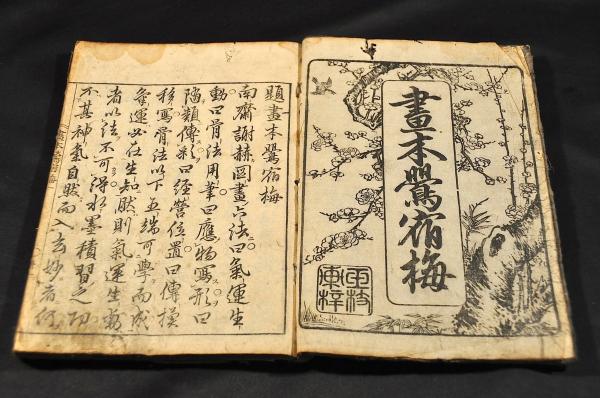 畫本鸎宿梅
題畫本鸎宿梅
南齊謝赫圖畫六法曰氣運生
動曰骨法用筆曰應物寫形曰
隨類傳彩曰經營位置曰傳摸
移寫骨法以下五端可學而成
氣運必在生知然則氣運生動
者以法不可得水墨積習之功
不甚神氣自然而入玄妙者何